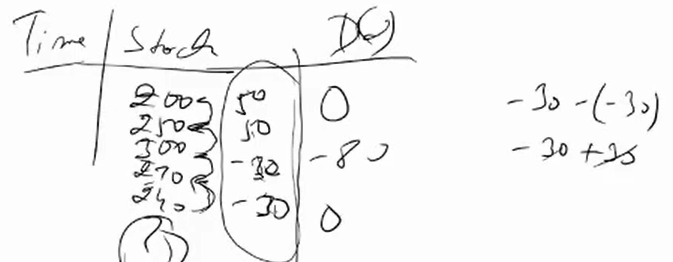 Time Stock D()
200 50 0
250 50
300 -30 -80
270 -30 0
240
?
-30 -(-30)
-30 +30